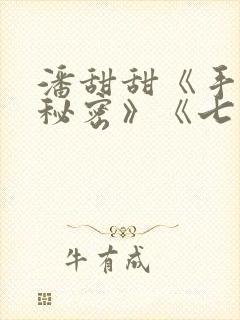 潘甜甜《手
秘密》《七
牛有成